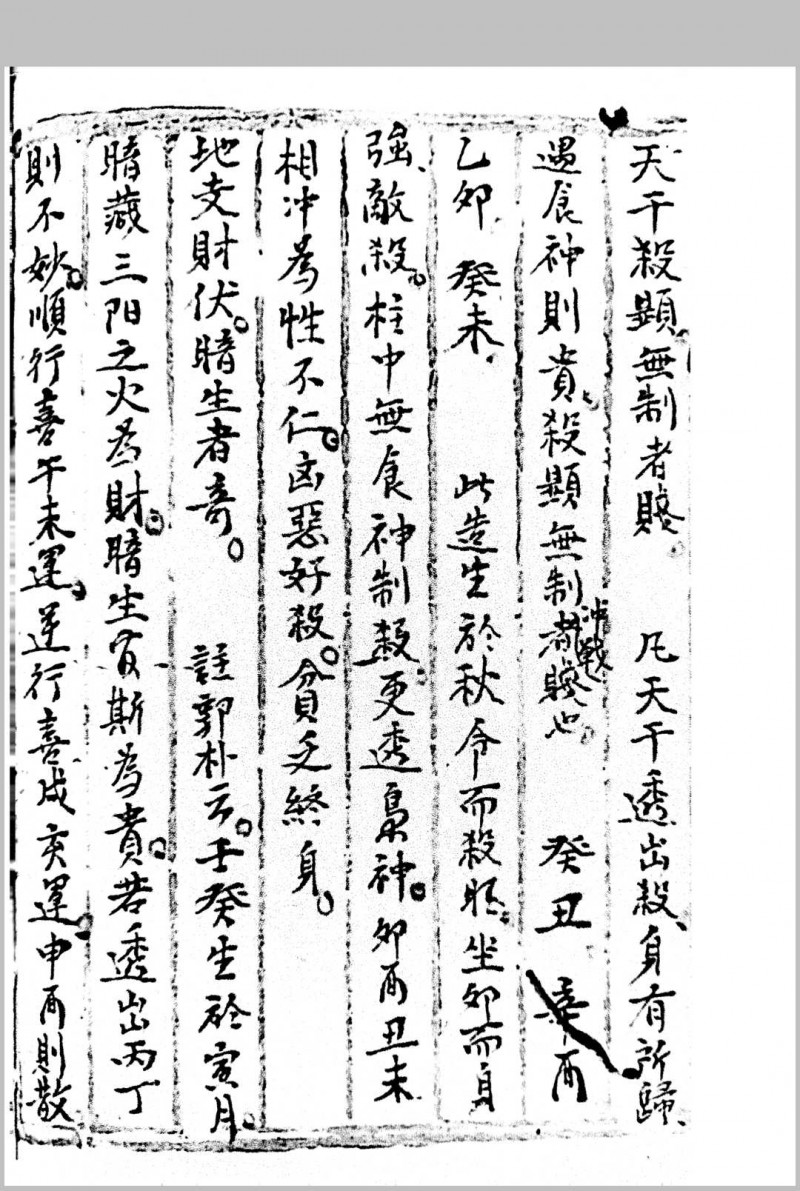 天干殺顯無制者賤　凡天干透出殺身有所歸
遇食神則貴殺顯無制者賤也冲戰　癸丑　辛酉
乙卯　癸未　此造生於秋令而殺旺坐卯而身
強敵殺。柱中無食神制殺更透梟神。卯酉丑未
相冲爲性不仁。凶惡好殺。貧乏終身。
地支財伏。暗生者奇。　註郭朴云。壬癸生於寅月。
暗藏三阳之火爲財。暗生官斯爲貴。若透出丙丁
則不妙。順行喜午未運。逆行喜戌亥運。申酉則散